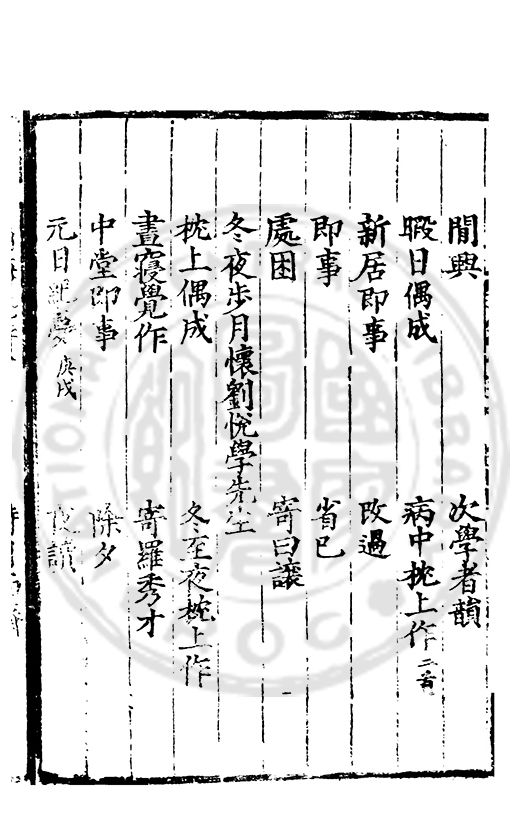 閒興　次學者韻
暇日偶成　病中枕上作二首
新居即事　改過
即事　省已
處困　寄曰讓
冬夜步月懷劉悅學先生
枕上偶成　冬至夜枕上作
晝寢覺作　寄羅秀才
中堂即事　除夕
元日　庚戌　夜讀